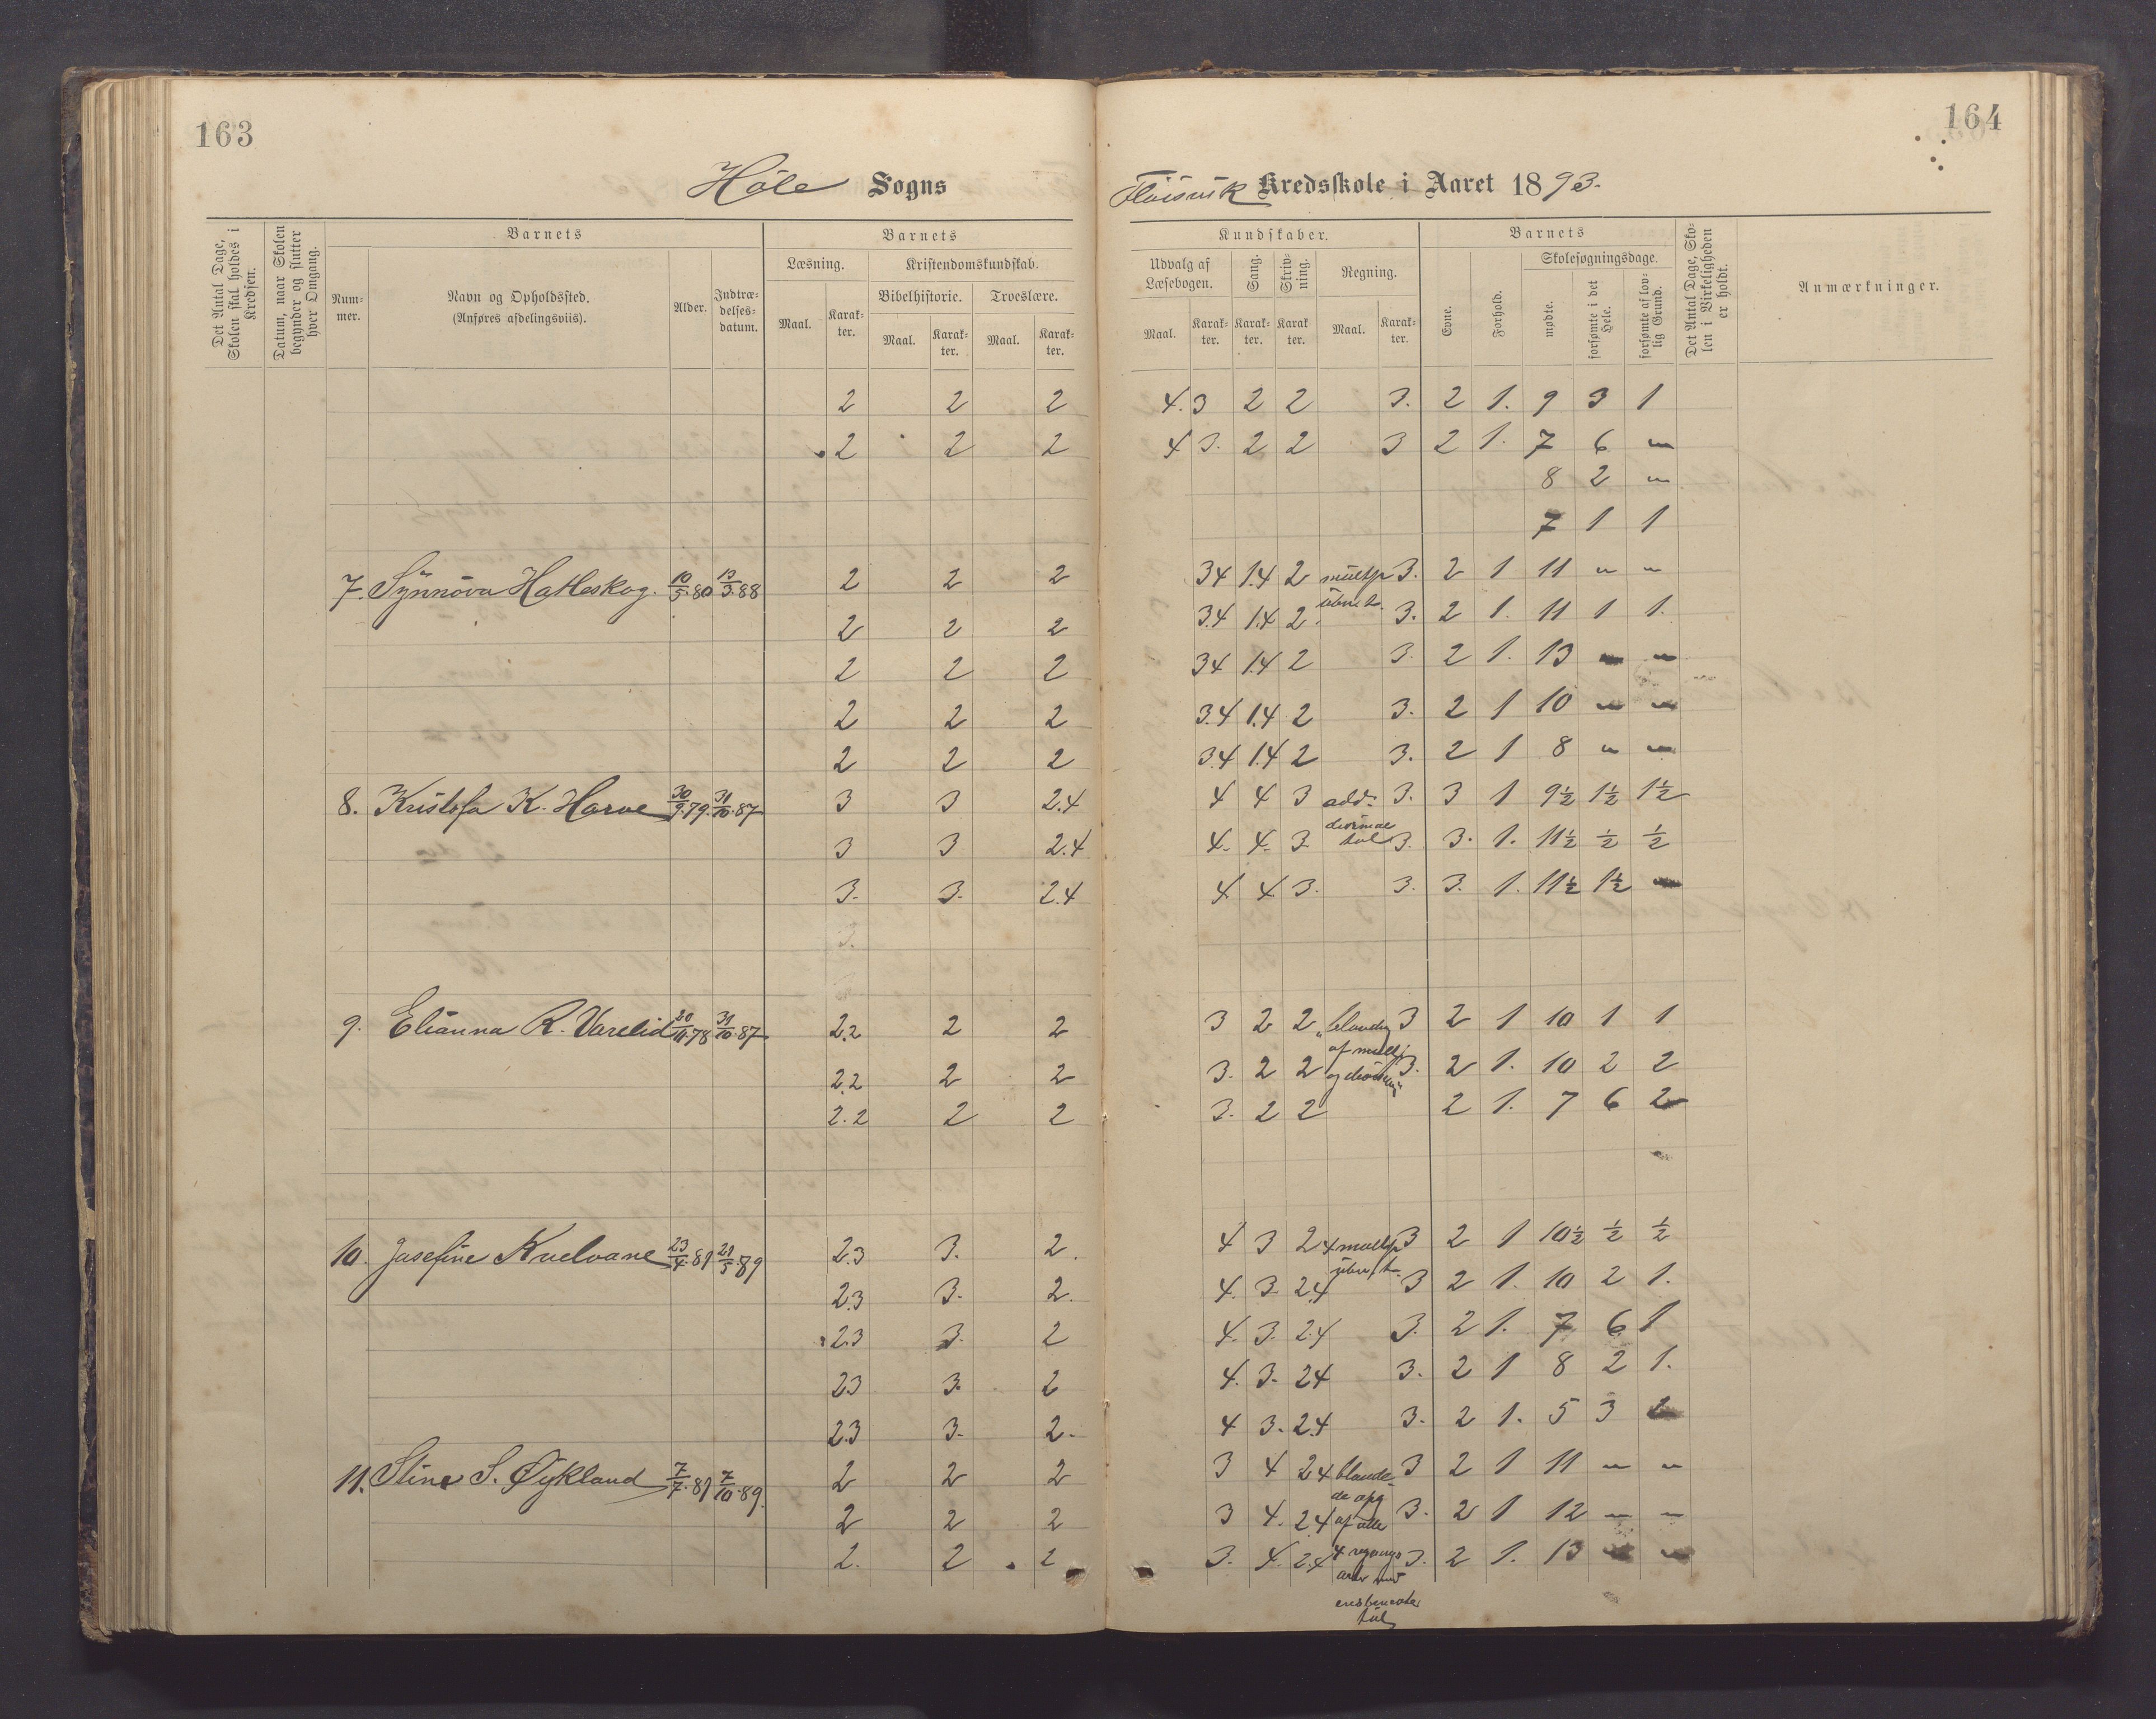 163
164
Höle Sogns
Kredsskole i Aaret 1893.
Det Antal Dage, Skolen skal holdes i Kredsen.
Datum, naar Skolen begynder og slutter hver Omgang.
Barnets
Num-
mer.
Navn og Opholdssted.
(Anføres afdelingsviis).
Alder.
Indtræ-
delses-
datum.
Barnets
Læsning.
Kristendomskundskab.
Bibelhistorie.
Troeslære.
Maal.
Karak-
ter.
Maal.
Karak-
ter.
Maal.
Karak-
ter.
Kundskaber.
Udvalg af
Læsebogen.
Sang.
Skriv-
ning.
Regning.
Maal.
Karak-
ter.
Karak-
ter.
Karak-
ter.
Maal.
Karak-
ter.
Barnets
Evne.
Forhold.
Skolesøgningsdage.
mødte.
forsømte i det Hele.
forsømte af lov-
lig Grund.
Det Antal Dage, Sko-
len i Virkeligheden
er holdt.
Anmærkninger.
2 2 2 4.3 2 2 3. 2 1. 9 3 1
2 2 2 4 3. 2 2 3 2 1. 7 6 "
8 2 "
7 1 1
7. Synnöva Hatleskog. 10/5.80 13/3.88 2 2 2 34 1.4 2 multp 3. 2 1 11 " "
2 2 2 3.4 1.4 2. 3. 2 1. 11 1 1.
2 2 2 34 1.4 2 3. 2 1. 13 " "
2 2 2 3.4 1.4 2 3. 2 1 10 " "
2 2 2 3.4 1.4 2 3. 2 1 8 " "
8. Kristofa K. Harve 30/9.79. 31/10.87 3 3 2.4 4 4 3 add. 3. 3 1 9½ 1½ 1½
3 3 2.4 4. 4. 3. decimal tal 3. 3. 1. 11½ ½ ½
3. 3. 2.4 4 4 3. 3. 3. 1. 11½ 1½ "
3.
9. Elianna R. Varelid 20/11.78 31/10.87 2.2 2 2 3 2 2 3 2 1 10 1 1
2.2 2 2 3. 2 2 af multp 3. 2 1. 10 2 2
2.2 2 2 3. 2 2 2 1. 7 6 2
10. Josefine Kvelvane 23/4.81 21/5.89 2.3 3. 2. 4 3 2.4 multp 3 2 1 10½ ½ ½
2.3 3. 2. 4. 3. 2.4 3 2 1. 10 2 1.
2.3 3. 2 4. 3. 2.4 3. 2 1. 7 6 1
2.3 3. 2 4. 3. 24 3. 2 1 8 2 1.
2.3 3. 2. 4 3. 2.4 3. 2 1. 5 3 2
11. Stina S. Öykland 7/7.81 7/10.89. 2 2 2 3 4 24 blande- 3 2 1 11 " "
2 2 2 3 4. 2.4 de opg af alle 3. 2 1 12 " "
2. 2 2 3. 4. 2.4 4 regnings 3. 2 1. 13 " "
arter med
ensbenevnte
tal